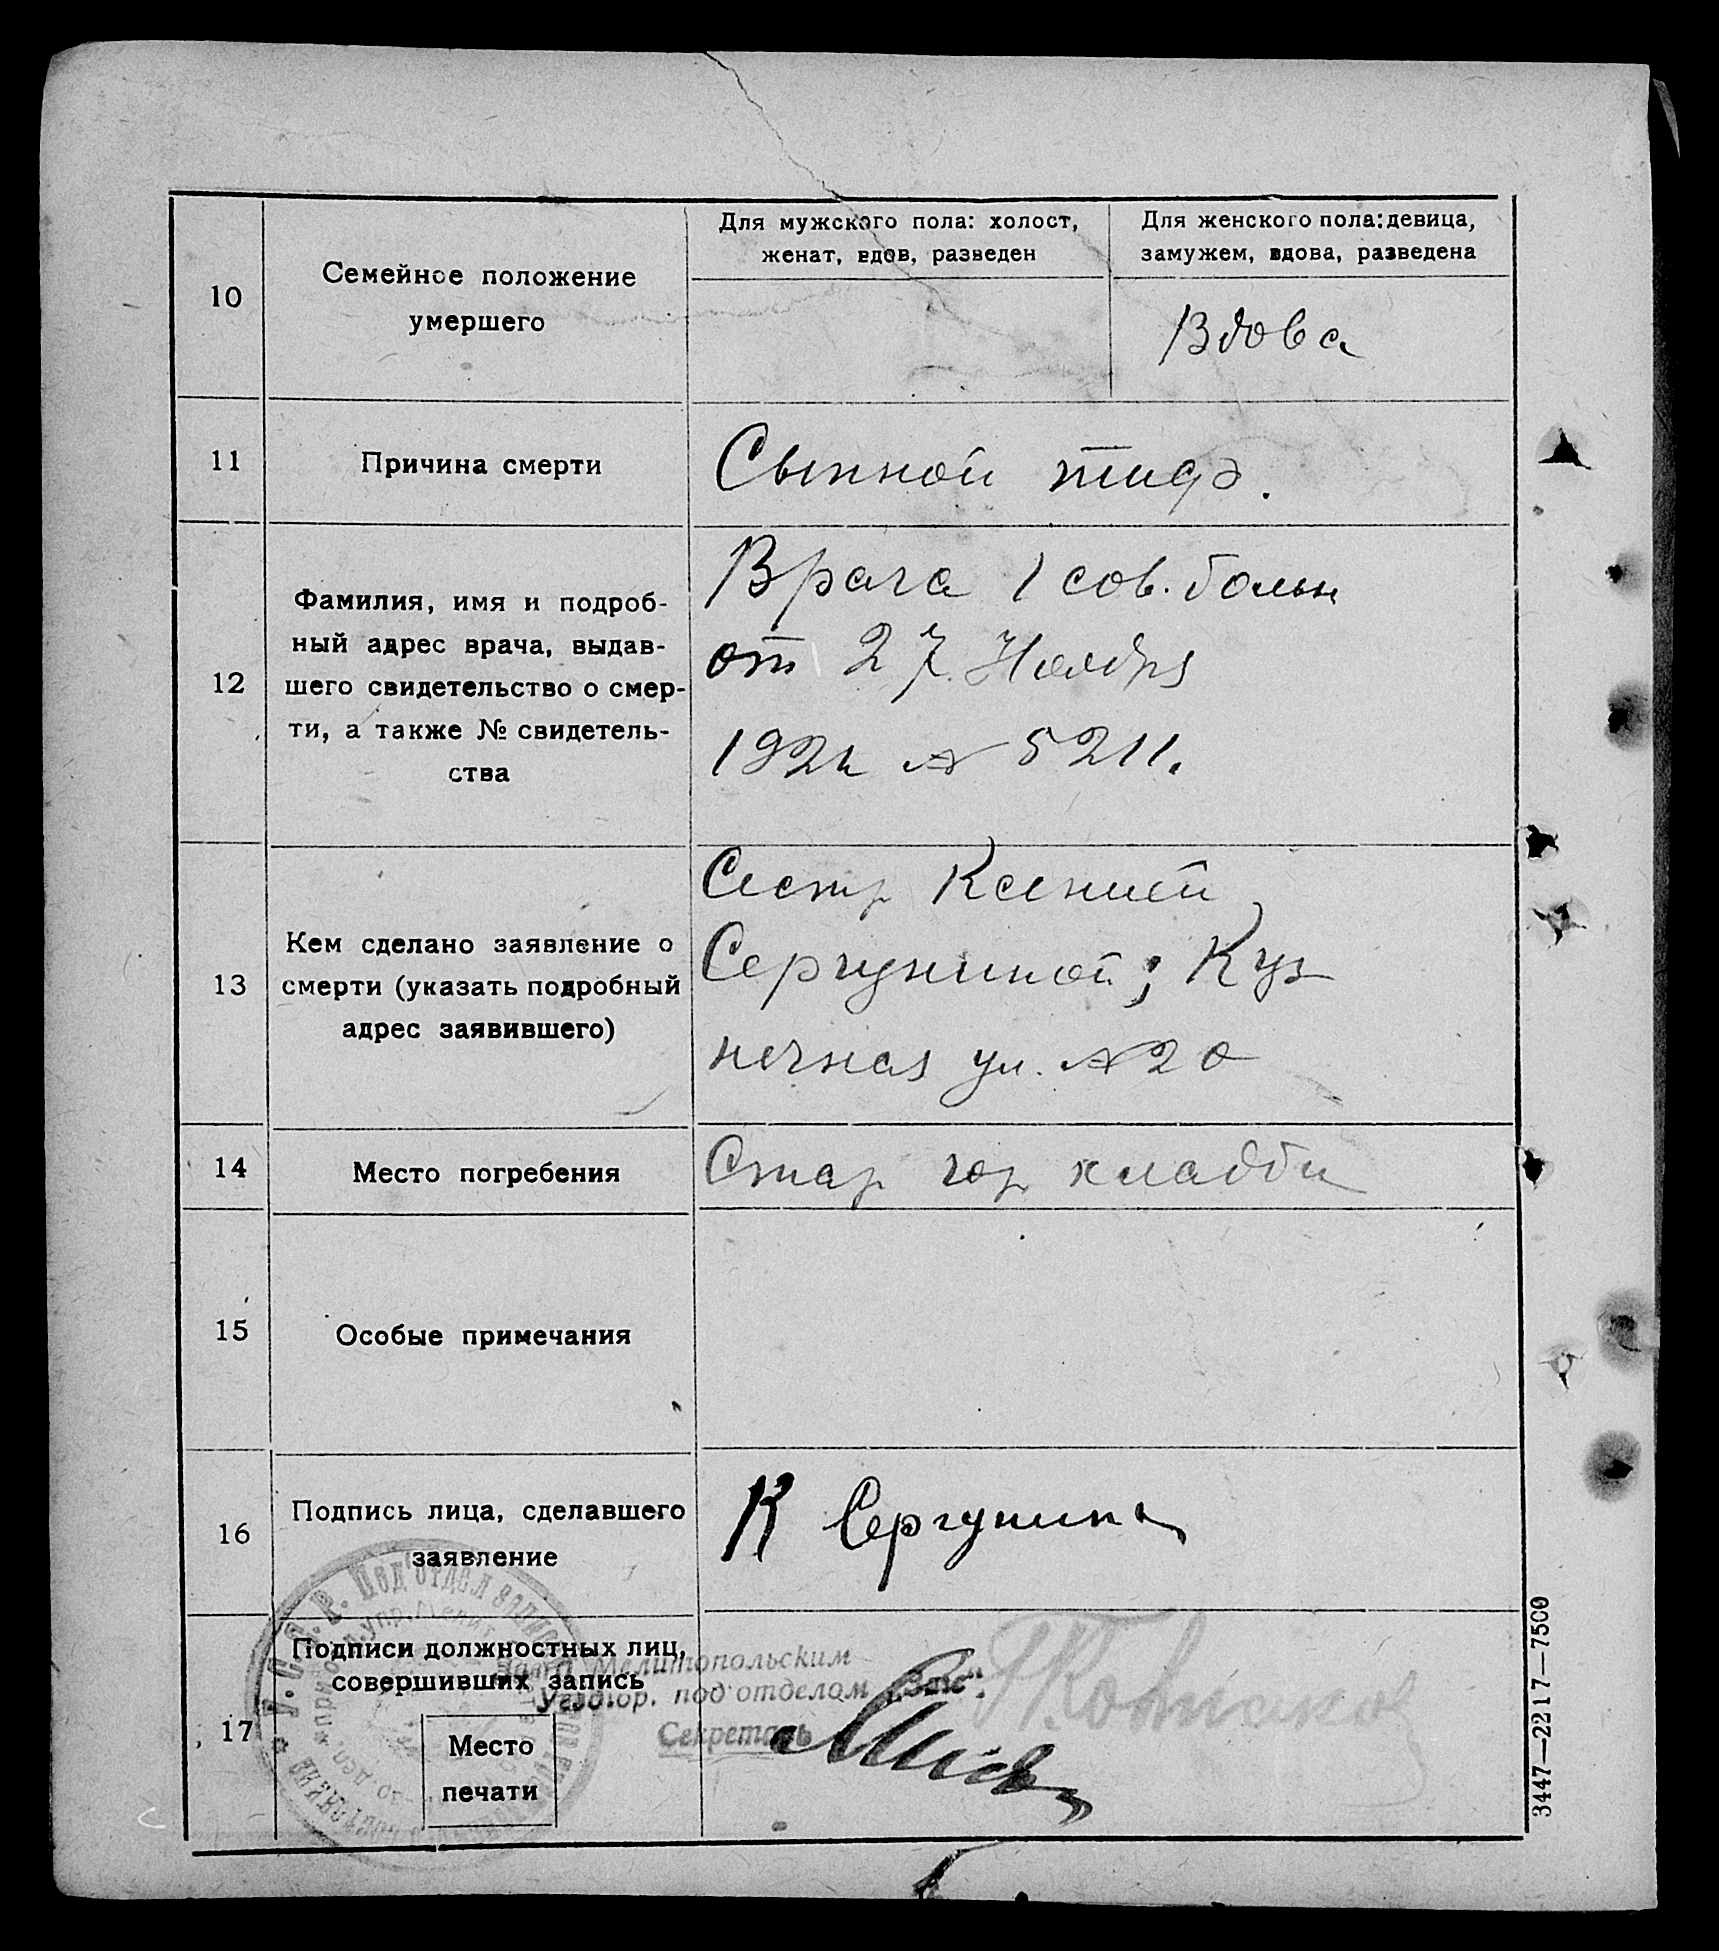 10
Семейное положение
умершего
Для мужского пола: холост,
женат, вдов, разведен
Для женского пола: девица,
замужем, вдова, разведена
Вдова
11
Причина смерти
Сыпной тиф.
12
Фамилия, имя и подроб-
ный адрес врача, выдав-
шего свидетельство о смер-
ти, а также № свидетель-
ства
Врача 1 сов. больн
от 27 Ноября
192 № 5211.
13
Кем сделано заявление о
смерти (указать подробный
адрес заявившего)
Сестр Ксенией
Сергуниной; Куз
нечная ул. № 20
14
Место погребения
Стар гор кладби
15
Особые примечания
16
Подпись лица, сделавшего
заявление
К Сергунина
17
Подписи должностных лиц,
совершивших запись
Место
печати
Мелитопольским
под'отделом „Загс".
Секретарь
Под'отдел
3447—2217—7500